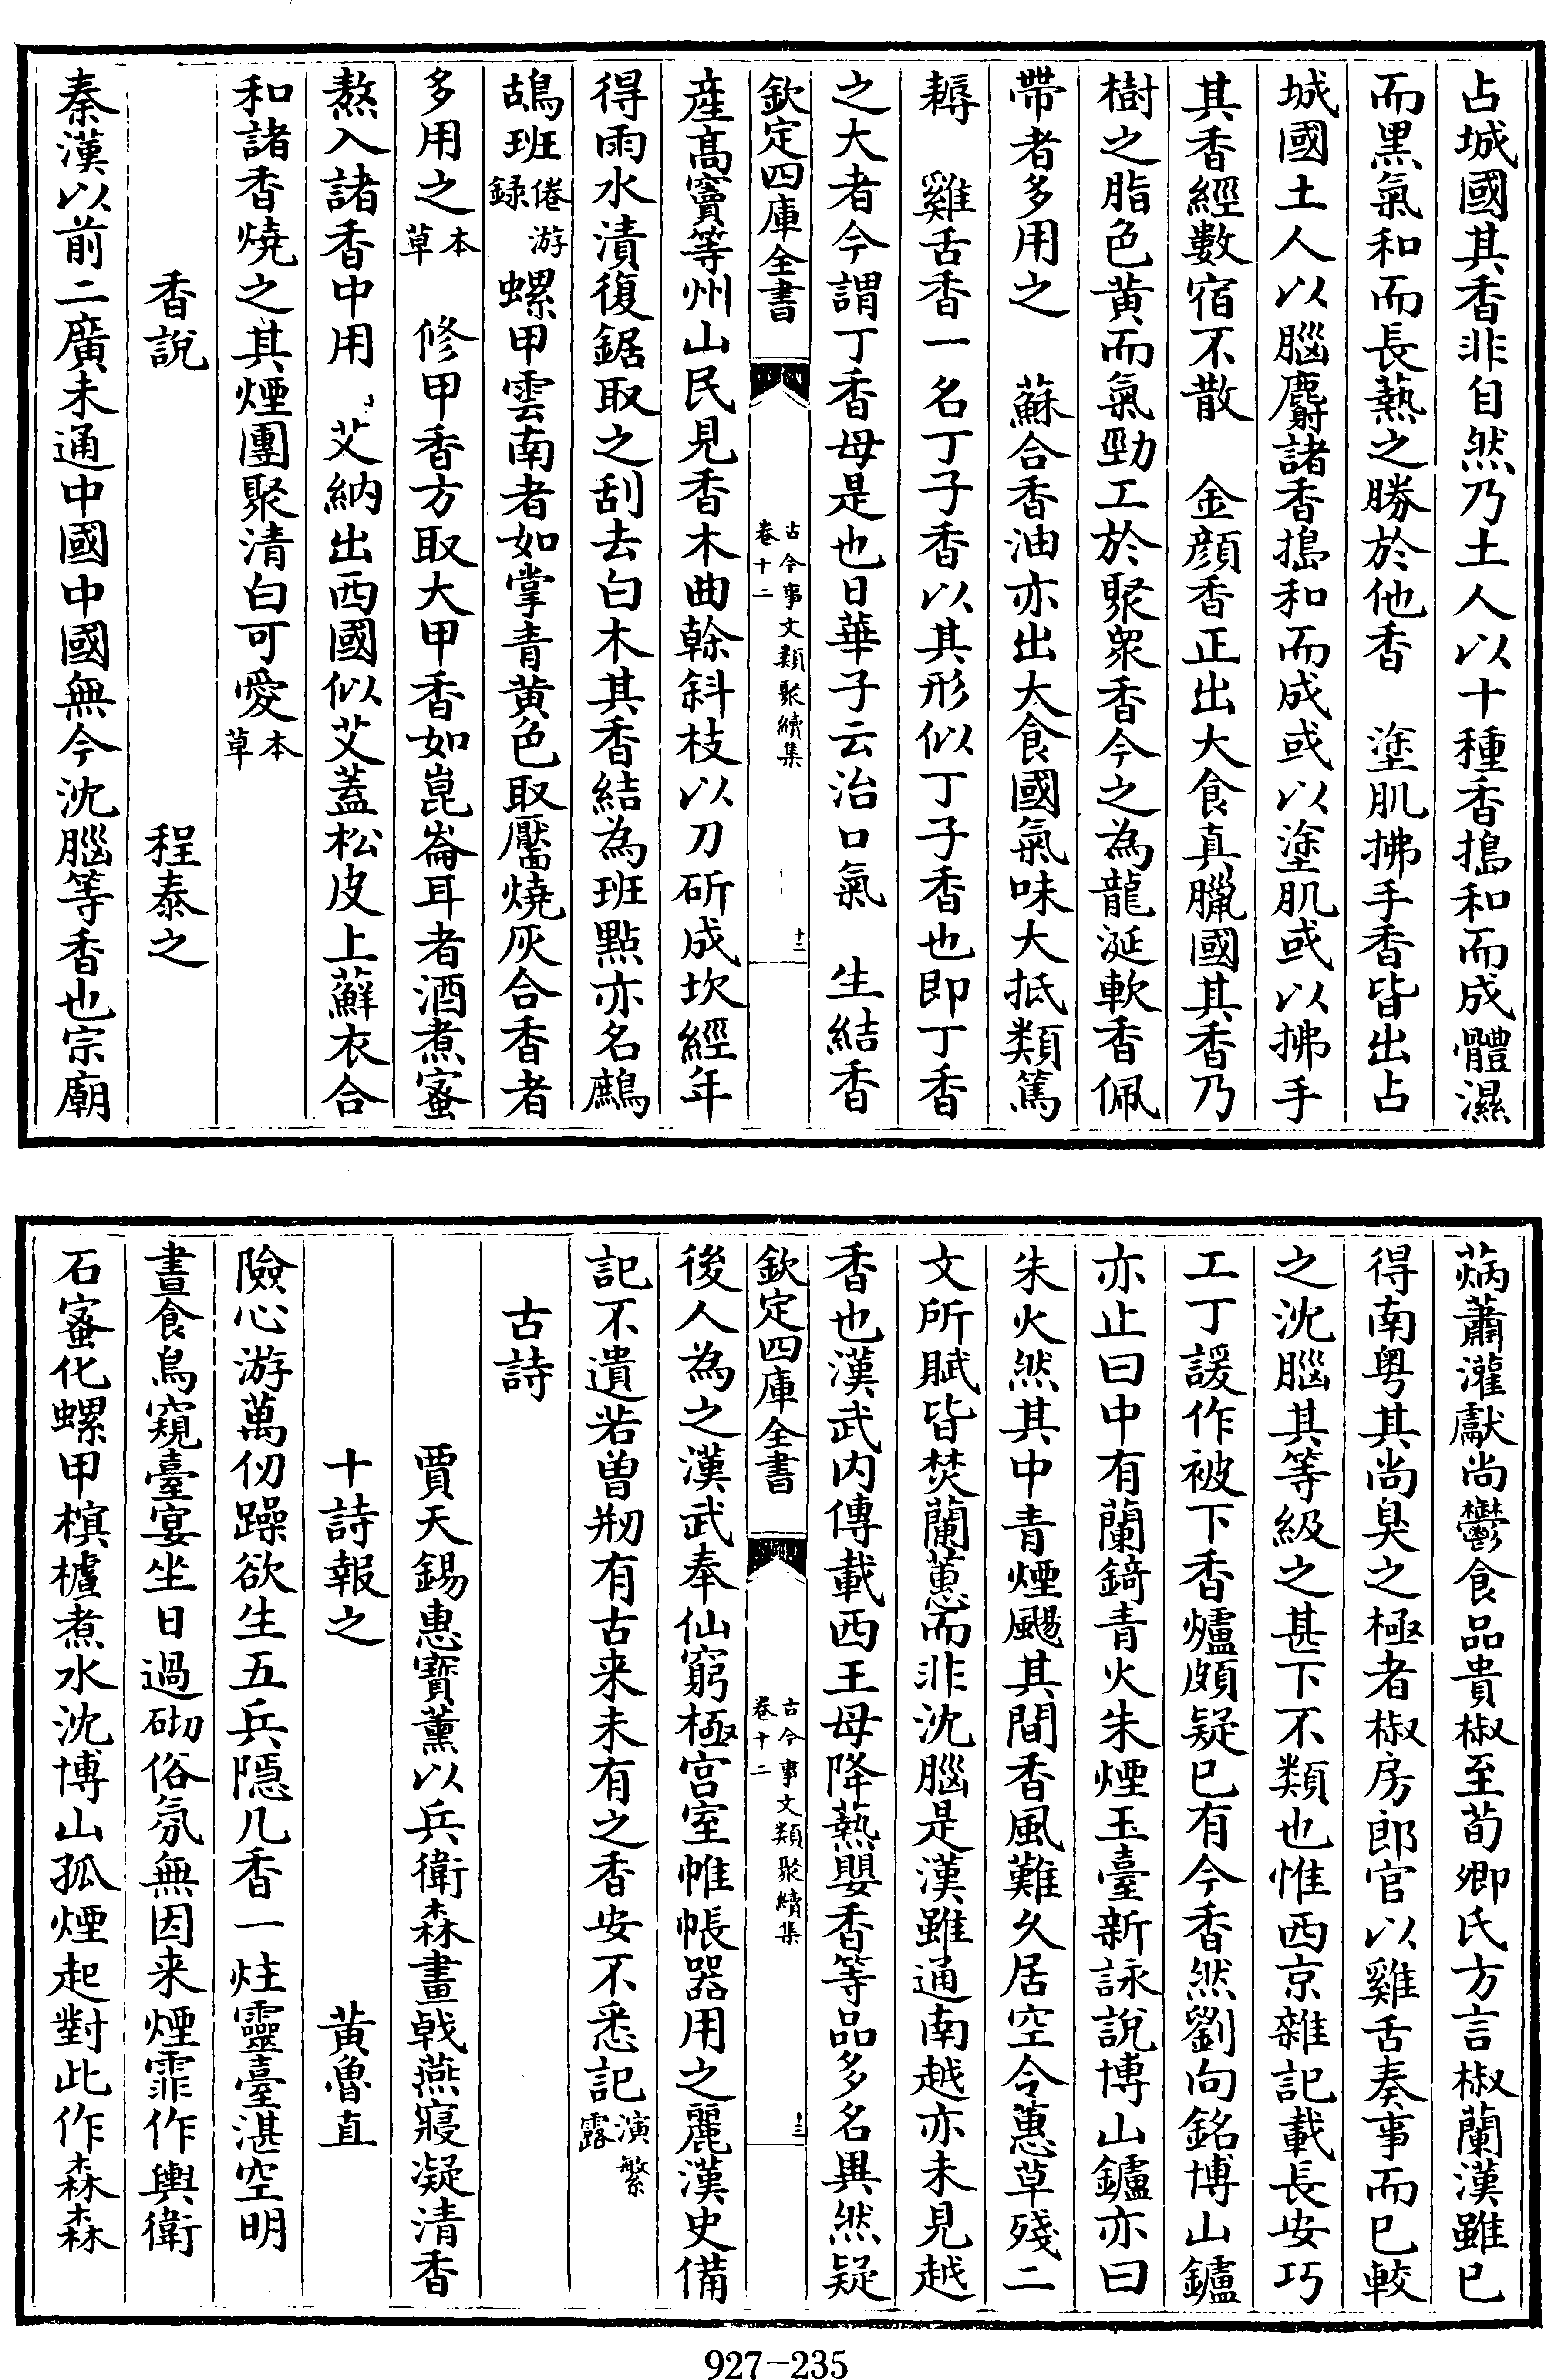 占城國其香非自然乃土人以十種香搗和而成體濕
而黑氣和而長爇之勝於他香　塗肌拂手香皆出占
城國土人以腦麝諸香搗和而成或以塗肌或以拂手
其香經數宿不散　金顔香正出大食真臘國其香乃
樹之脂色黄而氣勁工於聚衆香今之為龍涎軟香佩
帶者多用之　蘇合香油亦出大食國氣味大抵類篤
耨　雞舌香一名丁子香以其形似丁子香也即丁香
之大者今謂丁香母是也日華子云治口氣　生結香
欽定四庫全書　古今事文類聚續集卷十二　十二
産高竇等州山民見香木曲榦斜枝以刀斫成坎經年
得雨水漬復鋸取之刮去白木其香結為班點亦名鷓
鴣班倦游録　螺甲雲南者如掌青黄色取靨燒灰合香者
多用之本草　修甲香方取大甲香如崑崙耳者酒煮蜜
熬入諸香中用　艾納出西國似艾蓋松皮上蘚衣合
和諸香燒之其煙團聚清白可愛本草
香說　程泰之
秦漢以前二廣未通中國中國無今沈腦等香也宗廟
焫蕭灌獻尚鬱食品貴椒至荀卿氏方言椒蘭漢雖已
得南粤其尚臭之極者椒房郎官以雞舌奏事而已較
之沈腦其等級之甚下不類也惟西京雜記載長安巧
工丁諼作被下香爐頗疑已有今香然劉向銘博山鑪
亦止曰中有蘭錡青火朱煙玉臺新詠說博山鑪亦曰
朱火然其中青煙颺其間香風難久居空令蕙草殘二
文所賦皆焚蘭蕙而非沈腦是漢雖通南越亦未見越
香也漢武内傳載西王母降爇嬰香等品多名異然疑
欽定四庫全書　古今事文類聚續集卷十二　十三
後人為之漢武奉仙窮極宫室帷帳器用之麗漢史備
記不遺若曾剏有古来未有之香安不悉記演繁露
古詩
賈天錫惠寳薰以兵衛森畫戟燕寢凝清香
十詩報之　黄魯直
險心游萬仞躁欲生五兵隠几香一炷靈臺湛空明
晝食鳥窺臺宴坐日過砌俗氛無因来煙霏作輿衛
石蜜化螺甲榠樝煮水沈博山孤煙起對此作森森
927-235